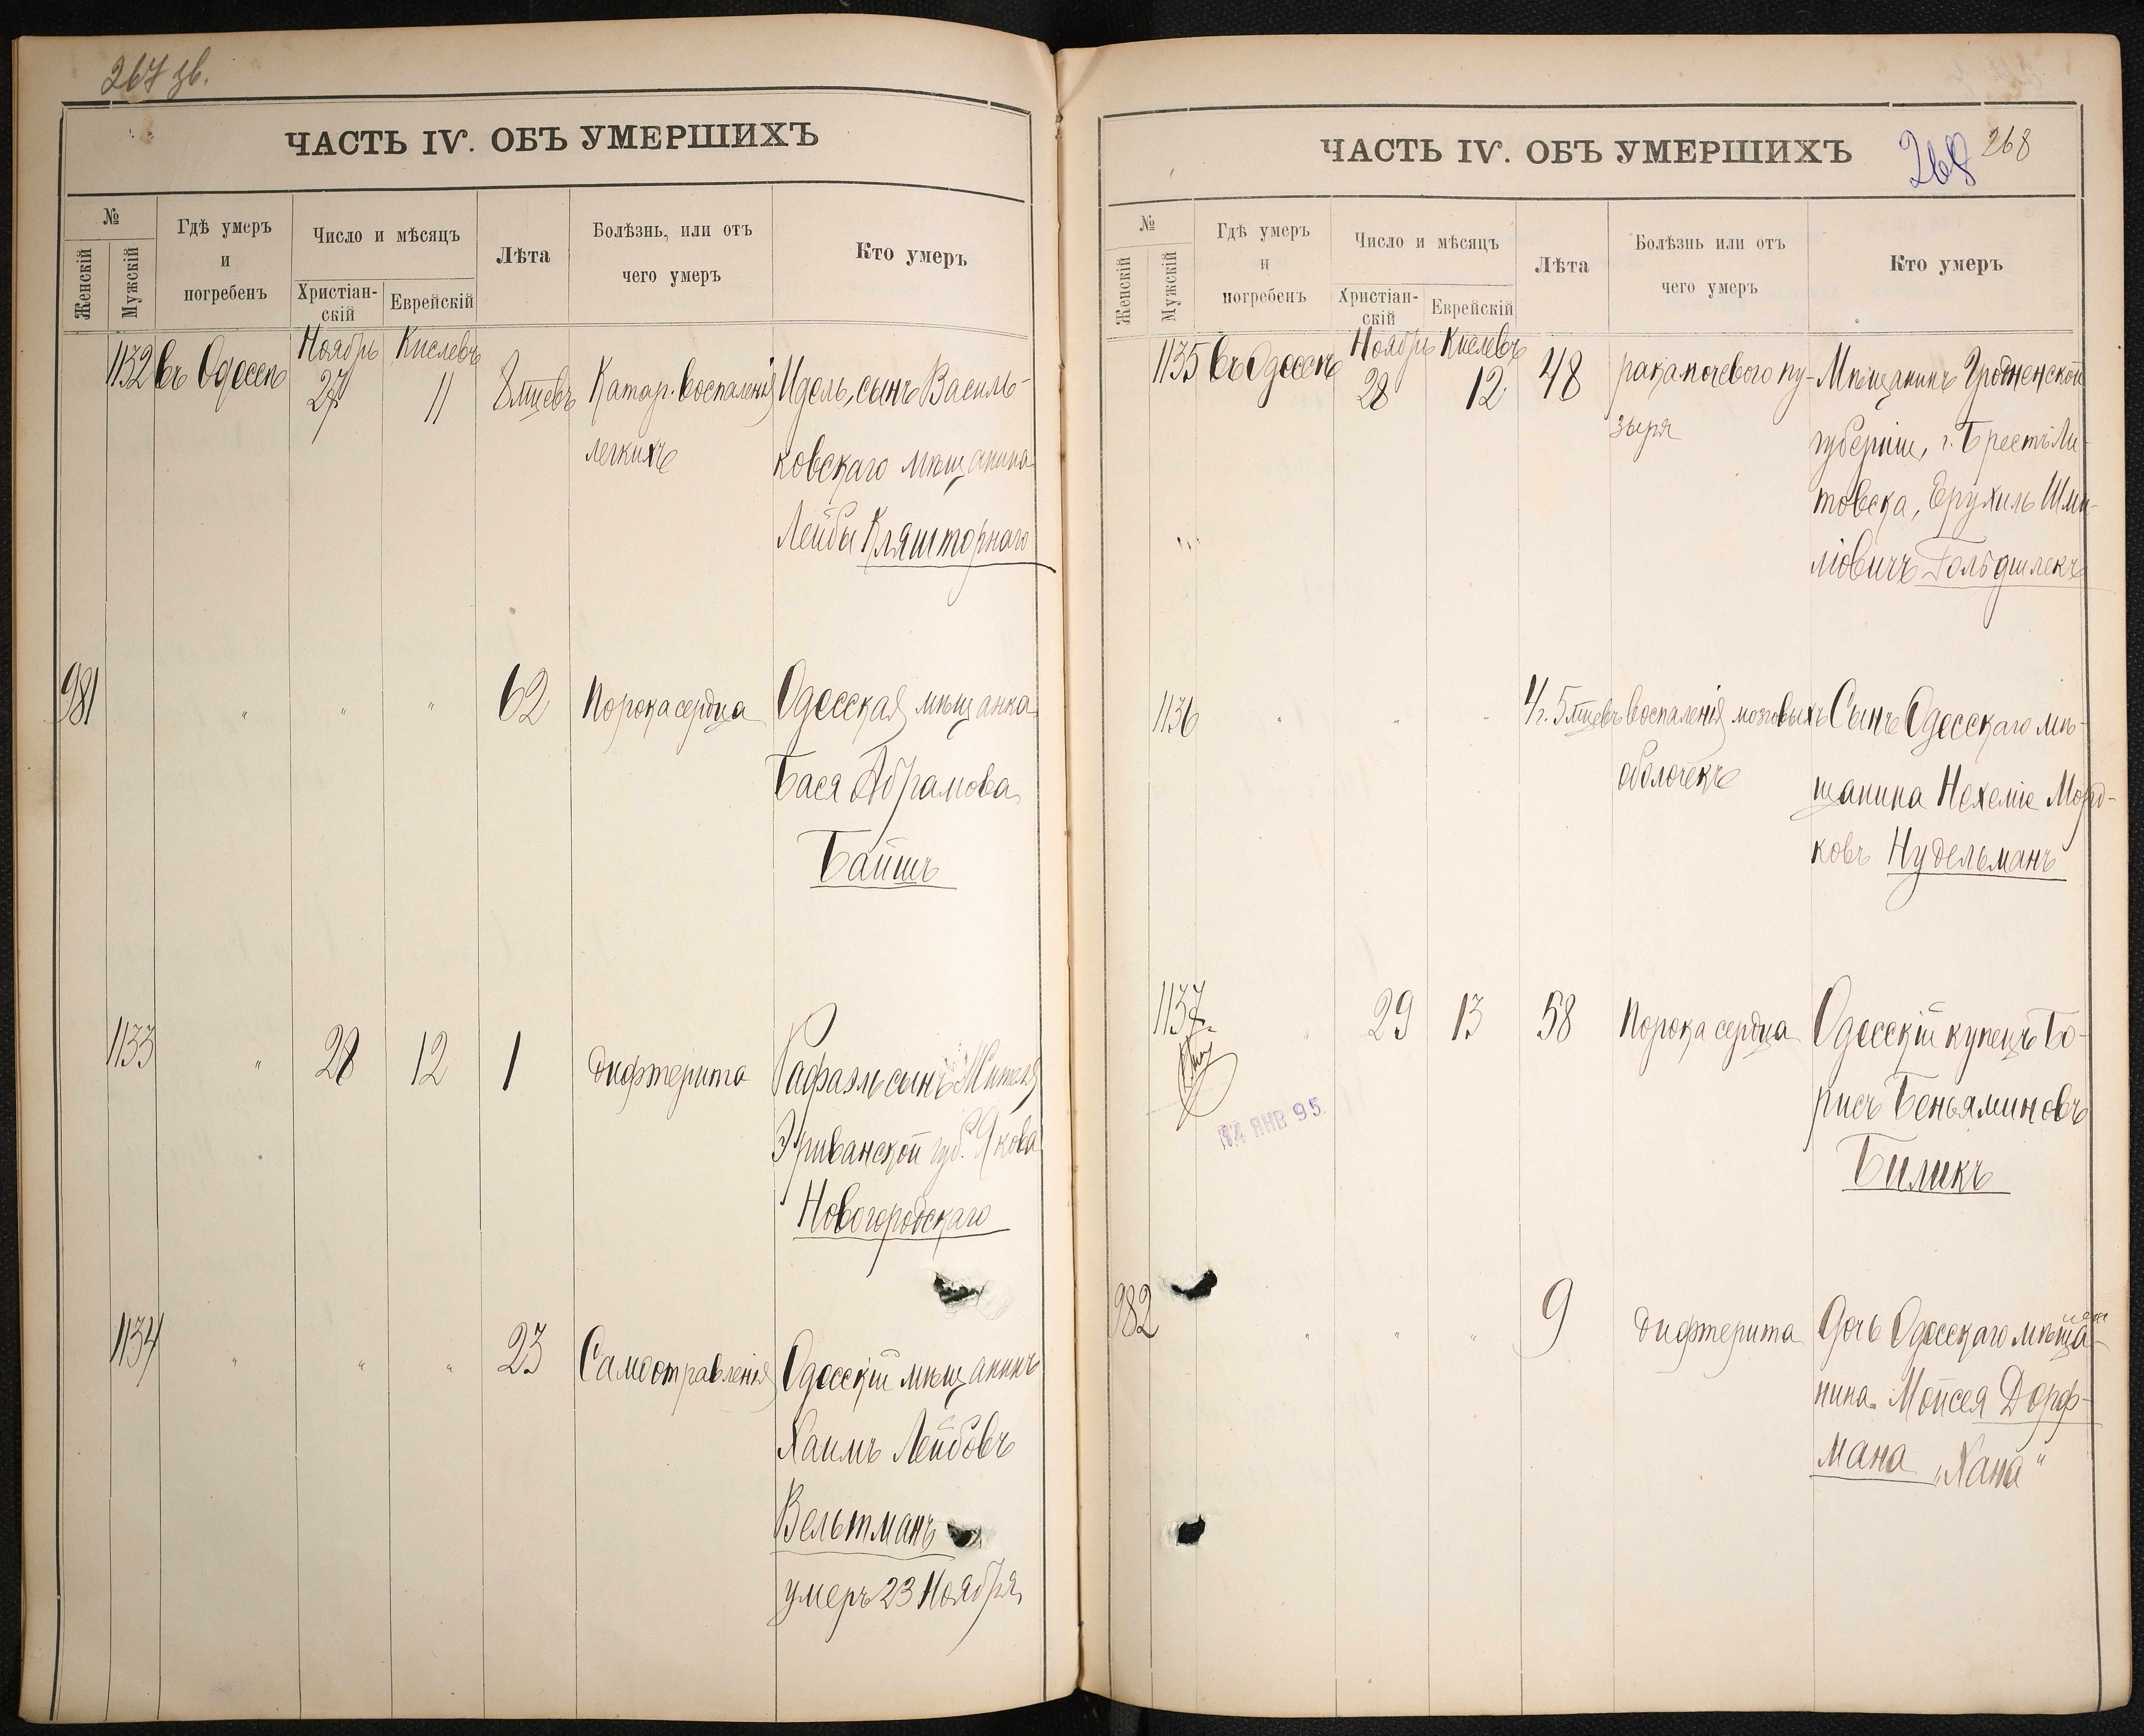 267 зв.
ЧАСТЬ IV. ОБЪ УМЕРШИХЪ
№
Женскій
Мужскій
Гдѣ умеръ
и
погребенъ
Число и мѣсяцъ
Христіан-
скій
Еврейскій
Лѣта
Болѣзнь, или отъ
чего умеръ
Кто умеръ
Ноябрь Кислевъ
1132 въ Одессѣ 27 11 8 мцевъ Катар. воспаленія Идель, сынъ Василь-
легкихъ ковскаго мѣщанина
Лейбы Кляшторнаго
981 " " " 62 Порока сердца Одесская мѣщанка
Бася Абрамова
Байшъ
1133 " 28 12 1 дифтерита Рафаэль сынъ Жителя
Эриванской губ. Якова
Новогородскаго
1134 " " " 23 Самоотравленія Одесскій мѣщанинъ
Хаимъ Лейбовъ
Вельтманъ
умеръ 23 Ноября
ЧАСТЬ IV. ОБЪ УМЕРШИХЪ 268 268
№
Женскій
Мужскій
Гдѣ умеръ
и
погребенъ
Число и мѣсяцъ
Христіан-
скій
Еврейскій
Лѣта
Болѣзнь или отъ
чего умеръ
Кто умеръ
Ноябрь Кислевъ
1135 въ Одессѣ 28 12 48 рака мочевого пу- Мѣщанинъ Гродненской
зыря губерніи, г. Брестъ Ли-
товска, Ерухиль Шми-
ліовичъ Гольдшлекъ
1136 " " " 4 г. 5 мцевъ воспаленія мозговыхъ Сынъ Одесскаго мѣ-
оболочекъ щанина Нехеміе Морд-
ковъ Нудельманъ
1137 " 29 13 58 Порока сердца Одесскій купецъ Бо-
рисъ Беньяминовъ
Биликъ
14 ЯНВ 95
982 " " " 9 дифтерита Дочь Одесскаго мѣща-
нина Мойсея Дорф-
мана „Хана"